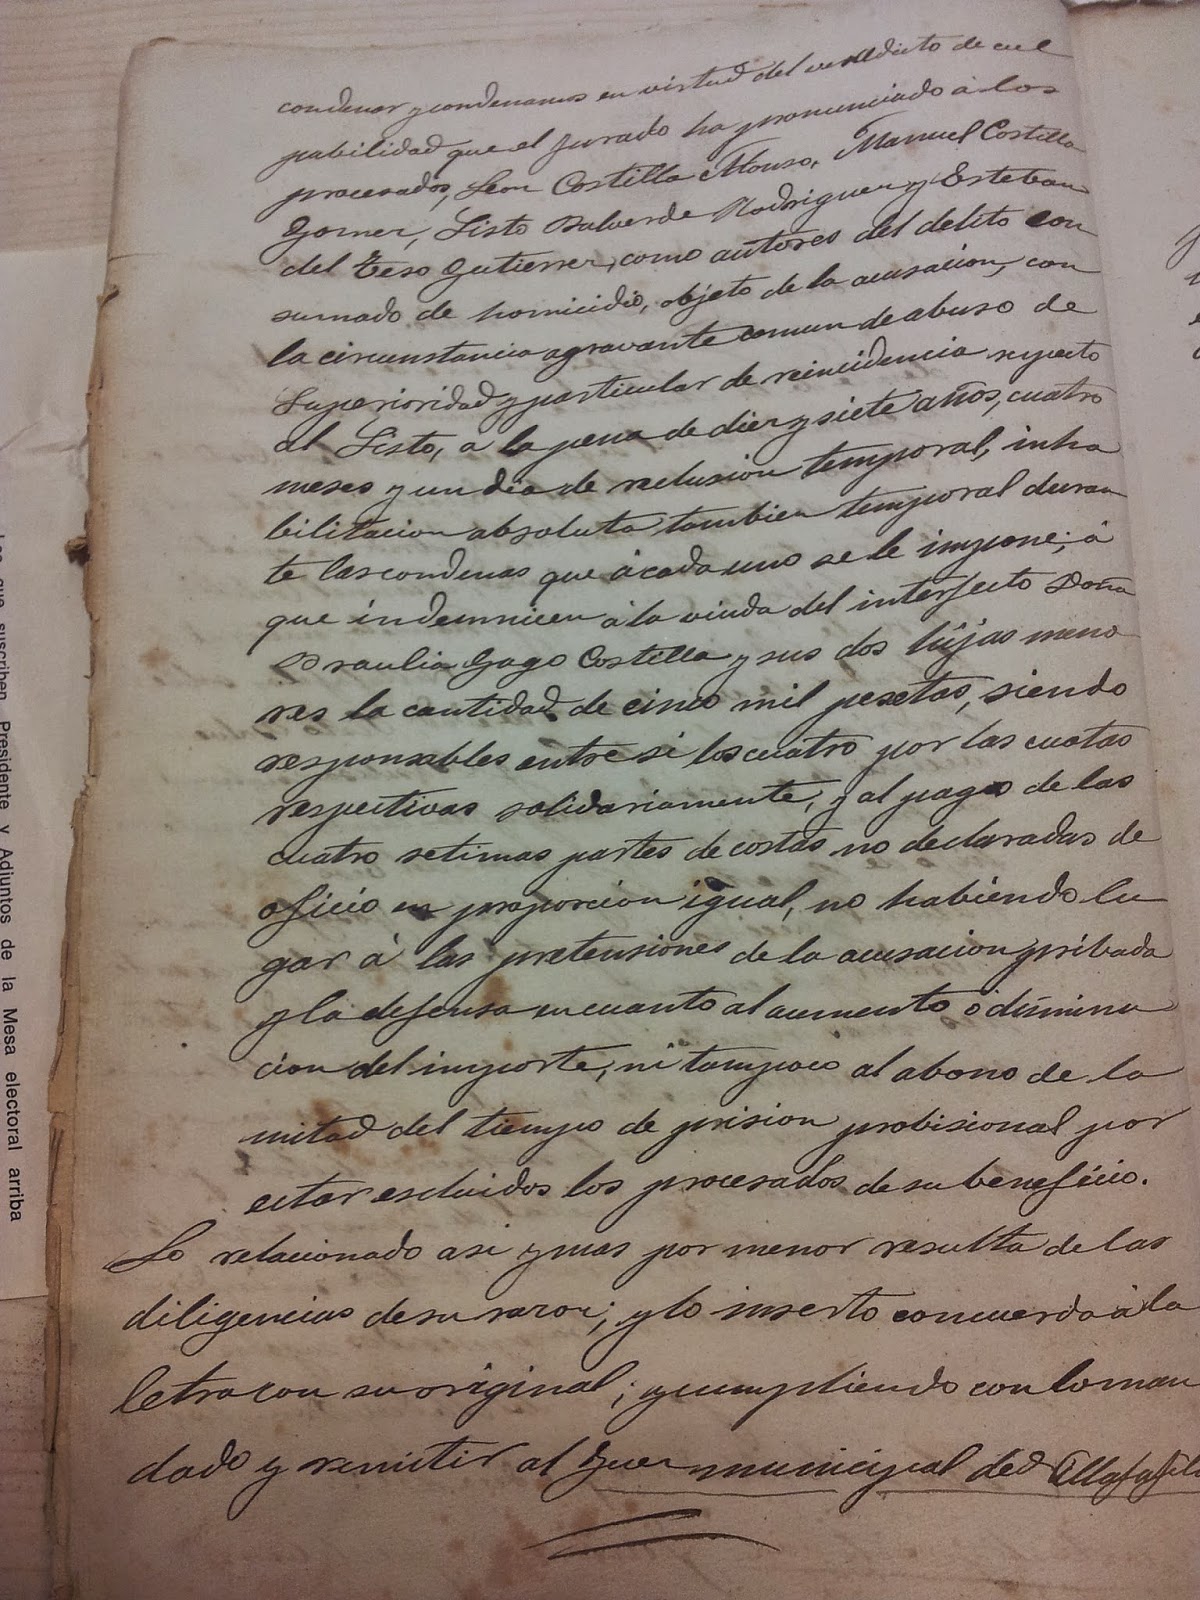 condenar y condenamos en virtud del veredicto de cul
pabilidad que el Jurado ha pronunciado á los
procesados, Leon Costilla Alonso, Manuel Costilla
Gomez, Sisto Balverde Rodriguez y Esteban
del Teso Gutierrez, como autores del delito con
sumado de homicidio, objeto de la acusacion, con
la circunstancia agravante comun de abuso de
Superioridad y particular de reincidencia respecto
al Sisto, a la pena de diez y siete años, cuatro
meses y un dia de reclusion temporal, inha
bilitacion absoluta tambien temporal duran
te las condenas que á cada uno se le impone; á
que indemnicen á la viuda del interfecto Doña
Braulia Gago Costilla y sus dos hijas meno
res la cantidad de cinco mil pesetas, siendo
responsables entre si los cuatro por las cuotas
respectivas solidariamente, y al pago de las
cuatro setimas partes de costas no declaradas de
oficio en proporcion igual, no habiendo lu
gar á las pretensiones de la acusacion pribada
y la defensa en cuanto al aumento ó disminu
cion del importe, ni tampoco al abono de la
mitad del tiempo de prision probisional por
estar escluidos los procesados de su beneficio.
Lo relacionado asi y mas por menor resulta de las
diligencias de su razon; y lo inserto concuerda á la
letra con su original; y cumpliendo con lo man
dado y remitir al Juez municipal de
Los que suscriben, Presidente y Adjuntos de la Mesa electoral arriba